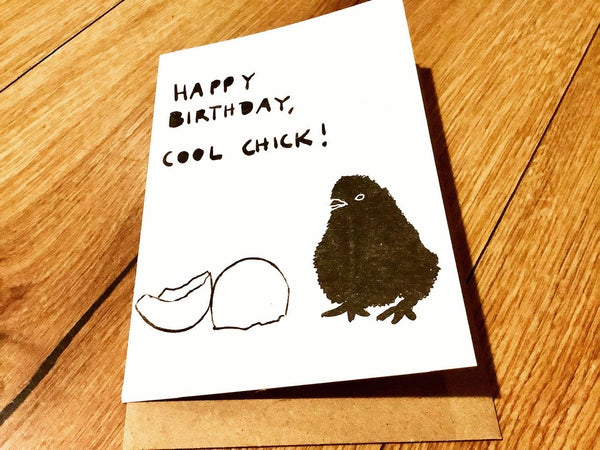 HAPPY
BIRTHDAY,
COOL CHICK!